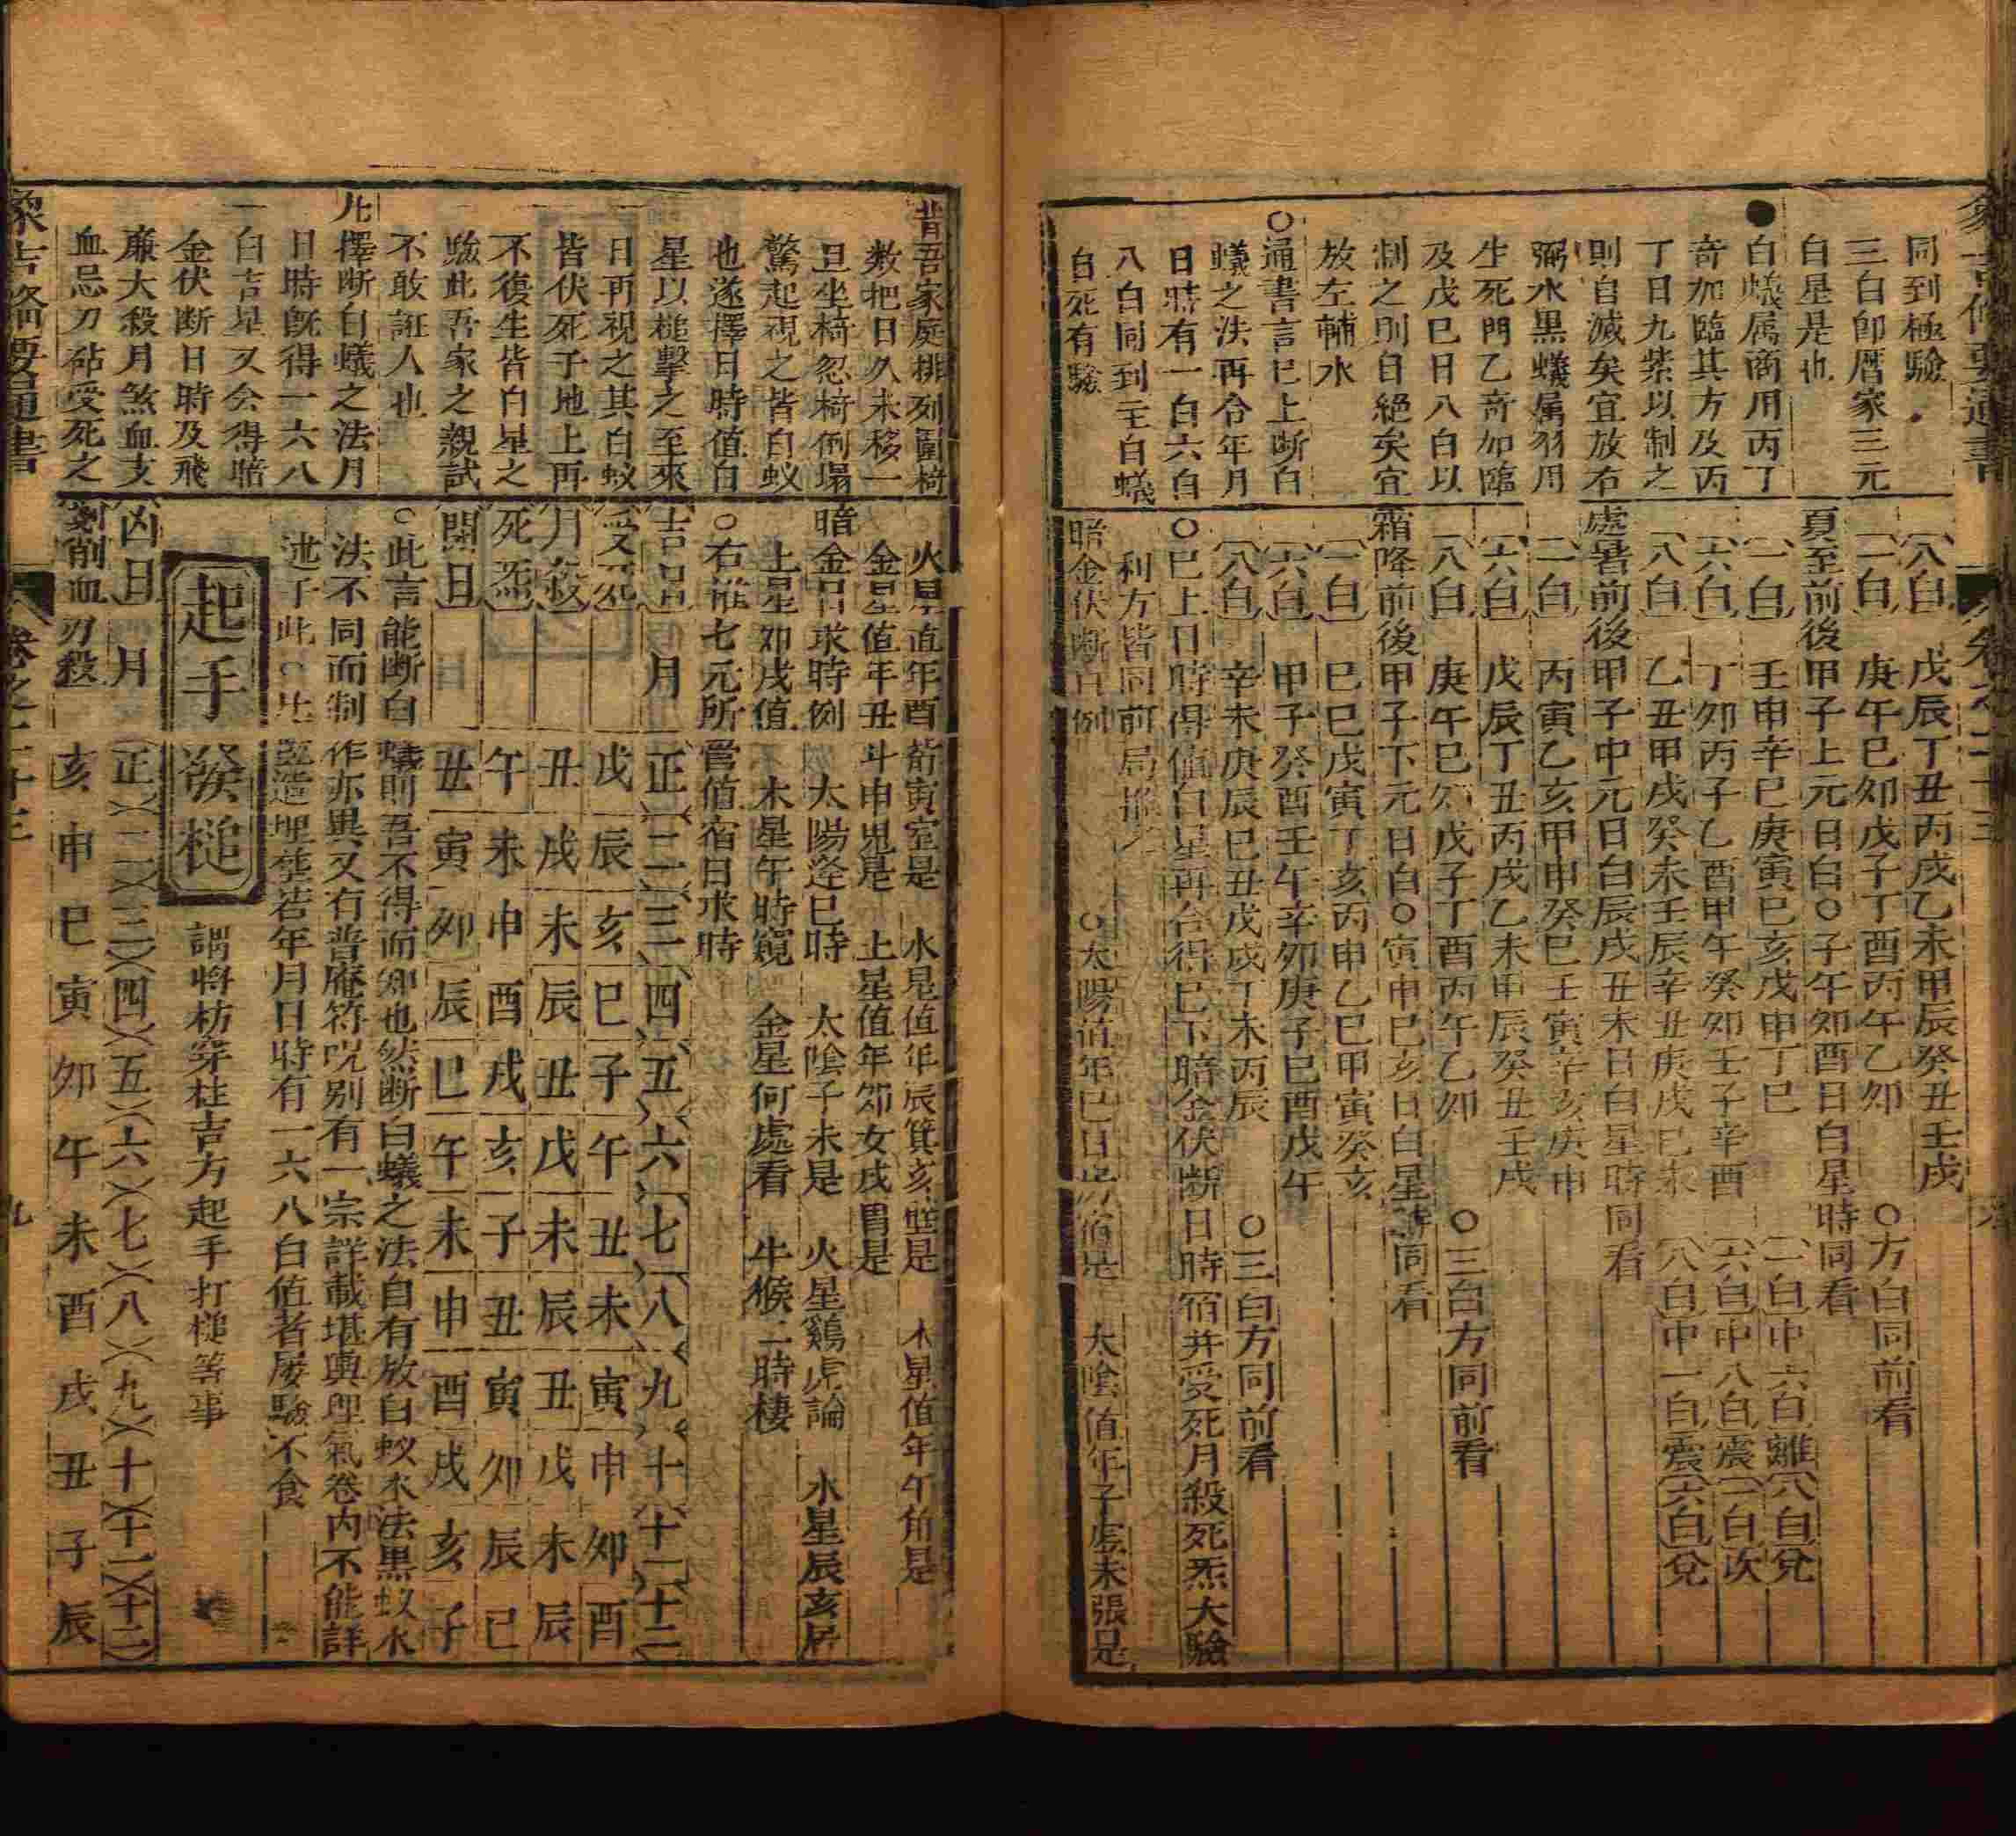 同到極驗
三白即曆家三元
白星是也
●白蟻属商用丙丁
奇加臨其方及丙
丁日九紫以制之
則自滅矣宜放右
弼水黑蟻属羽用
生死門乙奇加臨
及戊巳日八白以
制之則日絕矣宜
放左輔水
○通書言已上断白
蟻之法再合年月
日時有一白六白
八白同到主白蟻
自死有驗
八白 戊辰丁丑丙戌乙未甲辰癸丑壬戌
一白 庚午巳夘戊子丁酉丙午乙夘 ○方白同前看
夏至前後甲子上元日白○子午夘酉日白星時同看
一白 壬申辛巳庚寅巳亥戊申丁巳 一白中六白離八白兌
六白 丁夘丙子乙酉甲午癸夘壬子辛酉 六白中八白震一白坎
八白 乙丑甲戌癸未壬辰辛丑庚戌巳未 八白中一白震六白兌
處暑前後甲子中元日白辰戌丑未日白星時同看
一白 丙寅乙亥甲申癸巳壬寅辛亥庚申
六白 戊辰丁丑丙戌乙未甲辰癸丑壬戌
八白 庚午巳夘戊子丁酉丙午乙夘 ○三白方同前看
霜降前後甲子下元日白○寅申巳亥日白星時同看
一白 巳巳戊寅丁亥丙申乙巳甲寅癸亥
六白 甲子癸酉壬午辛夘庚子巳酉戊午
八白 辛未庚辰巳丑戊戌丁未丙辰 ○三白方同前看
○巳上日時得值白星再合得巳下暗金伏断日時宿并受死月殺死炁大驗
利方皆同前局推
暗金伏断日例 ○太陽值年巳日房宿是 太陰值年子虛未張是
昔吾家庭排列圍椅
数把日久未移一
旦坐椅忽椅倒塌
驚起視之皆白蚁
也遂擇日時值白
星以槌擊之至來
日再視之其白蚁
皆伏死于地上再
不復生皆白星之
驗此吾家之親試
不敢誑人也
凡擇断白蟻之法月
日時旣得一六八
白吉星又会得暗
金伏断日時及飛
廉大殺月煞血支
血忌刀砧受死之
火星直年酉觜寅室是 水星值年辰箕亥壁是 木星值年午角是
金星值年丑斗申鬼是 土星值年夘女戌胃是
暗金日求時例 太陽逢巳時 太陰子未是 火星鷄虎論 水星辰亥居
土星夘戌值 木星午時窺 金星何處看 牛猴二時棲
○右推七元所管值宿日求時
吉凶月 正 二 三 四 五 六 七 八 九 十 十一 十二
受死 戌 辰 亥 巳 子 午 丑 未 寅 申 夘 酉
月殺 丑 戌 未 辰 丑 戌 未 辰 丑 戌 未 辰
死炁 午 未 申 酉 戌 亥 子 丑 寅 夘 辰 巳
閉日 丑 寅 夘 辰 巳 午 未 申 酉 戌 亥 子
○此言能断白蟻則吾不得而知也然断白蟻之法自有放白蚁水法黑蚁水
法不同而制作亦異又有普庵符呪别有一宗詳載堪輿理氣卷内不能詳
述于此凡竪造埋塟若年月日時有一六八白值者屡驗不食
起手發槌 謂將枋穿柱吉方起手打槌等事
凶日 月 正 二 三 四 五 六 七 八 九 十 十一 十二
劉削血刃殺 亥 申 巳 寅 夘 午 未 酉 戌 丑 子 辰
象吉備要通書
卷之二十三
九